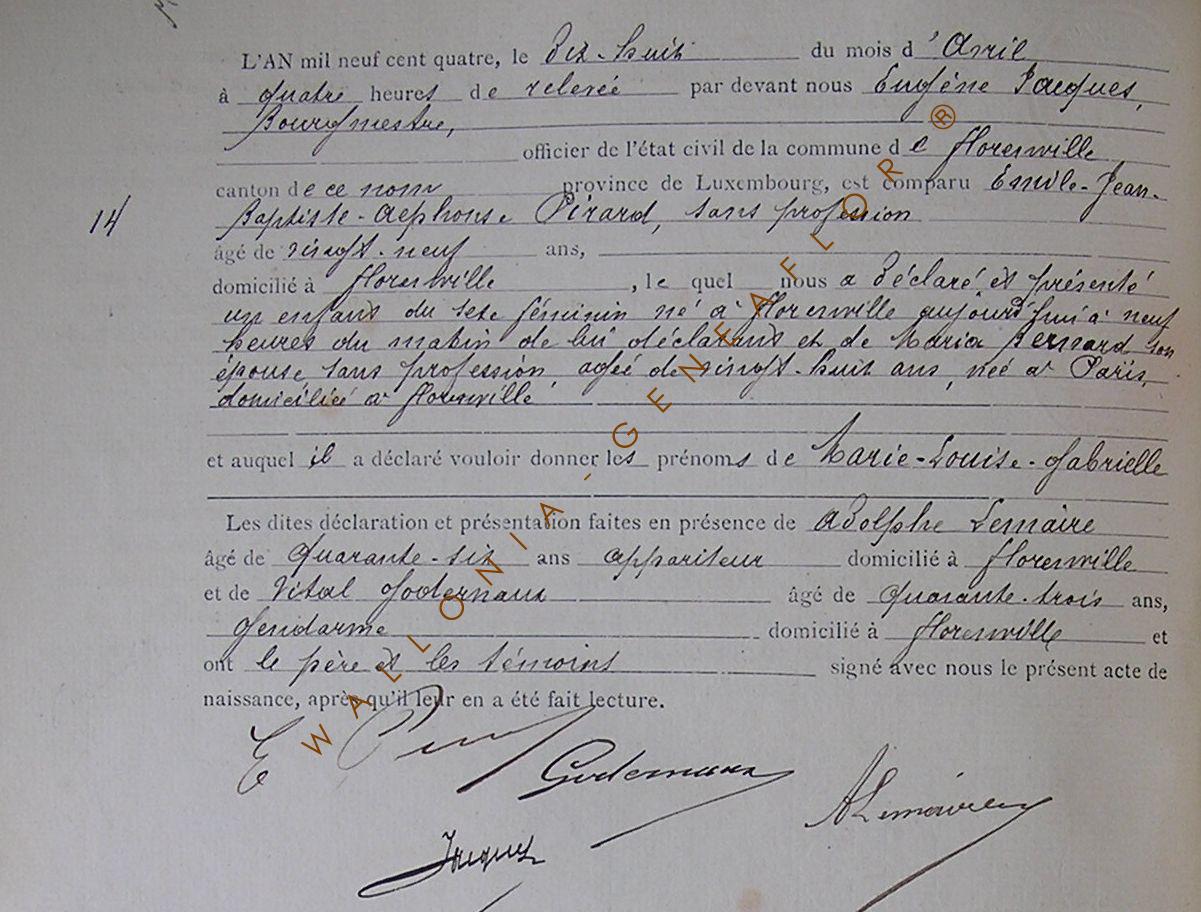 L'AN mil neuf cent quatre, le dix-huit du mois d'Avril
à quatre heures de relevée par devant nous Eugène Jacques,
Bourgmestre,
officier de l'état civil de la commune de Florenville
canton de ce nom province de Luxembourg, est comparu Emile-Jean-
14
Baptiste-Alphonse Pirard, sans profession
âgé de vingt-neuf ans,
domicilié à Florenville, le quel nous a déclaré et présenté
un enfant du sexe féminin né à Florenville aujourd'hui à neuf
heures du matin de lui déclarant et de Maria Bernard son
épouse, sans profession, agée de vingt-huit ans, née à Paris,
domiciliée à Florenville
et auquel il a déclaré vouloir donner les prénoms de Marie-Louise-Gabrielle
Les dites déclaration et présentation faites en présence de Adolphe Lemaire
âgé de quarante-six ans appariteur domicilié à Florenville
et de Vital Godernaux âgé de quarante-trois ans,
Gendarme domicilié à Florenville et
ont le père et les témoins signé avec nous le présent acte de
naissance, après qu'il leur en a été fait lecture.
E
Godernaux
ALemaire
Jacques
WALLONIA-GENEAFLOR®